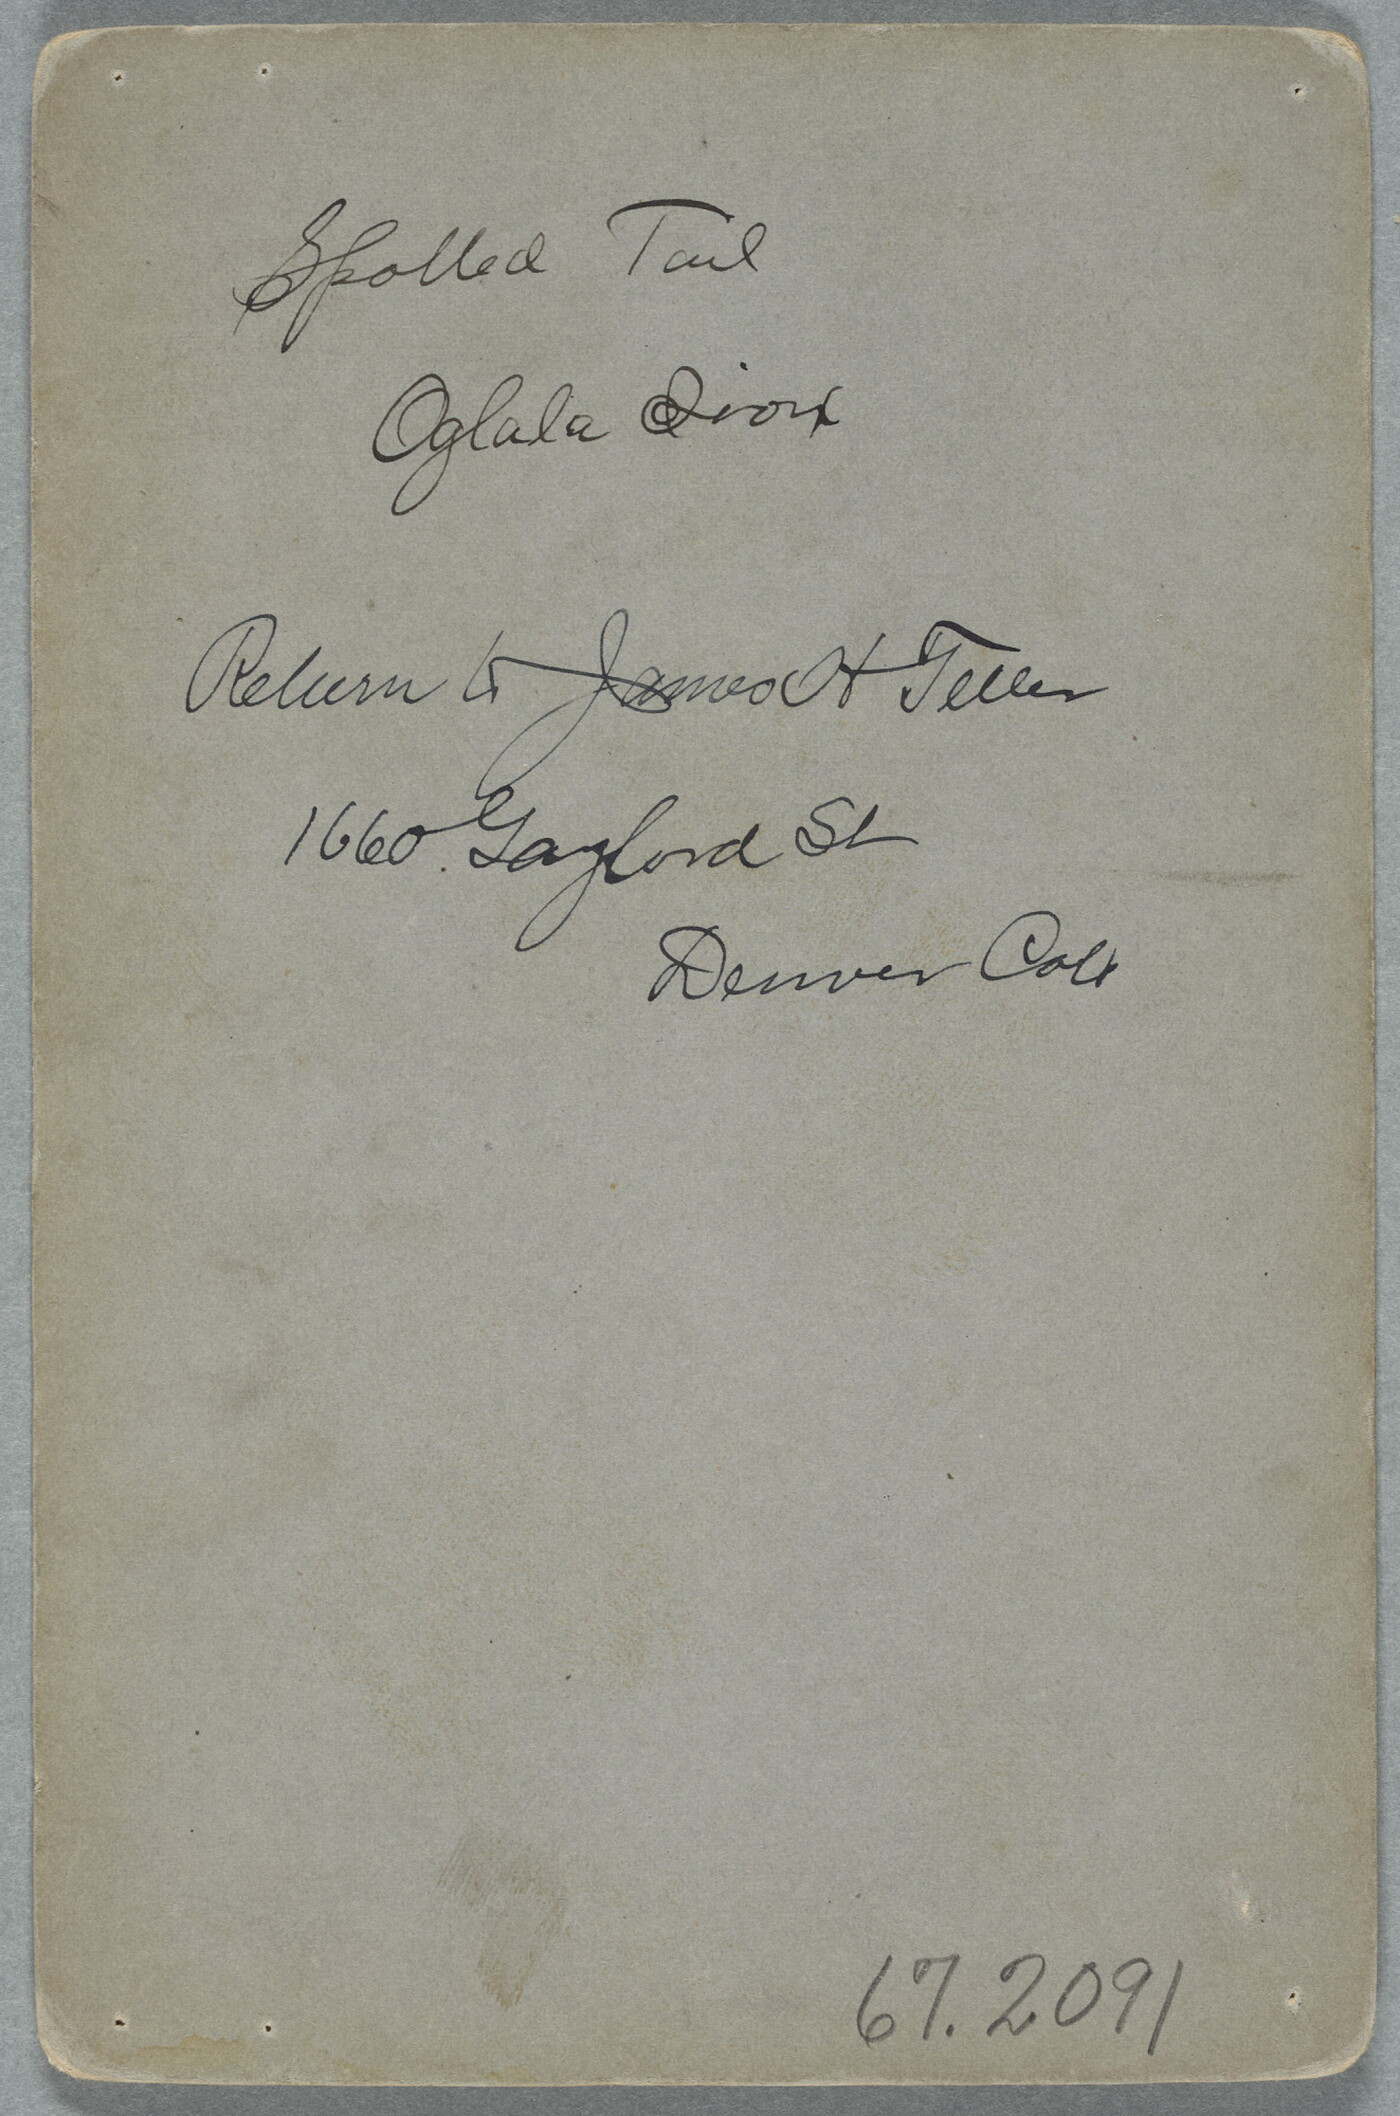 Spotted Tail
Oglala Sioux
Return to James H Teller
1660 Gaylord St
Denver Colo
67.2091